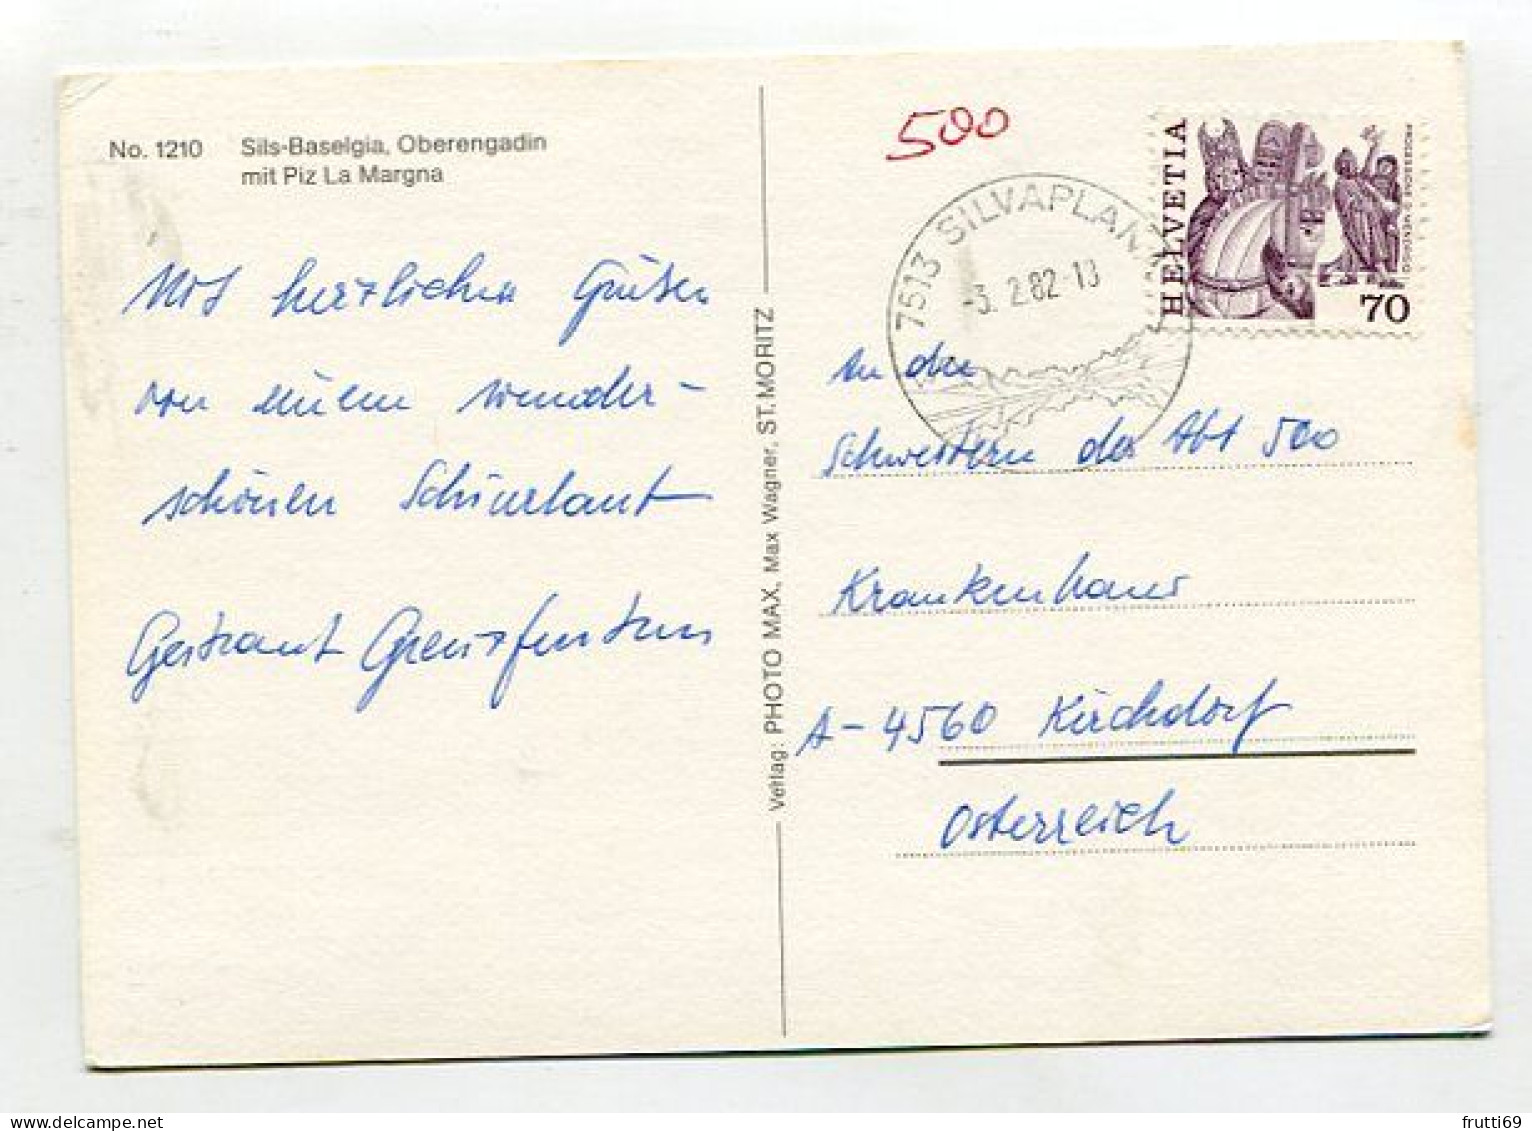 No. 1210 Sils-Baselgia, Oberengadin
mit Piz La Margna
Mit herzlichen Grüßen
von einem wunder-
schönen Schiurlaub
Gertraut
Verlag: PHOTO MAX, Max Wagner, ST. MORITZ
500
7513 SILVAPLANA
-3. 2.82-18
HELVETIA
PROCESSIONE D. MENDRISIO
70
An die
Schwestern der Abt 500
Krankenhaus
A-4560 Kirchdorf
Österreich
frutti69